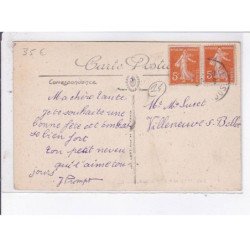 35€
Carte Postale
Correspondance
Ma chère tante
je te souhaite une
bonne fête et t'embrasse
bien fort
ton petit neveu
qui t'aime tou
jours
5
5
Villeneuve s